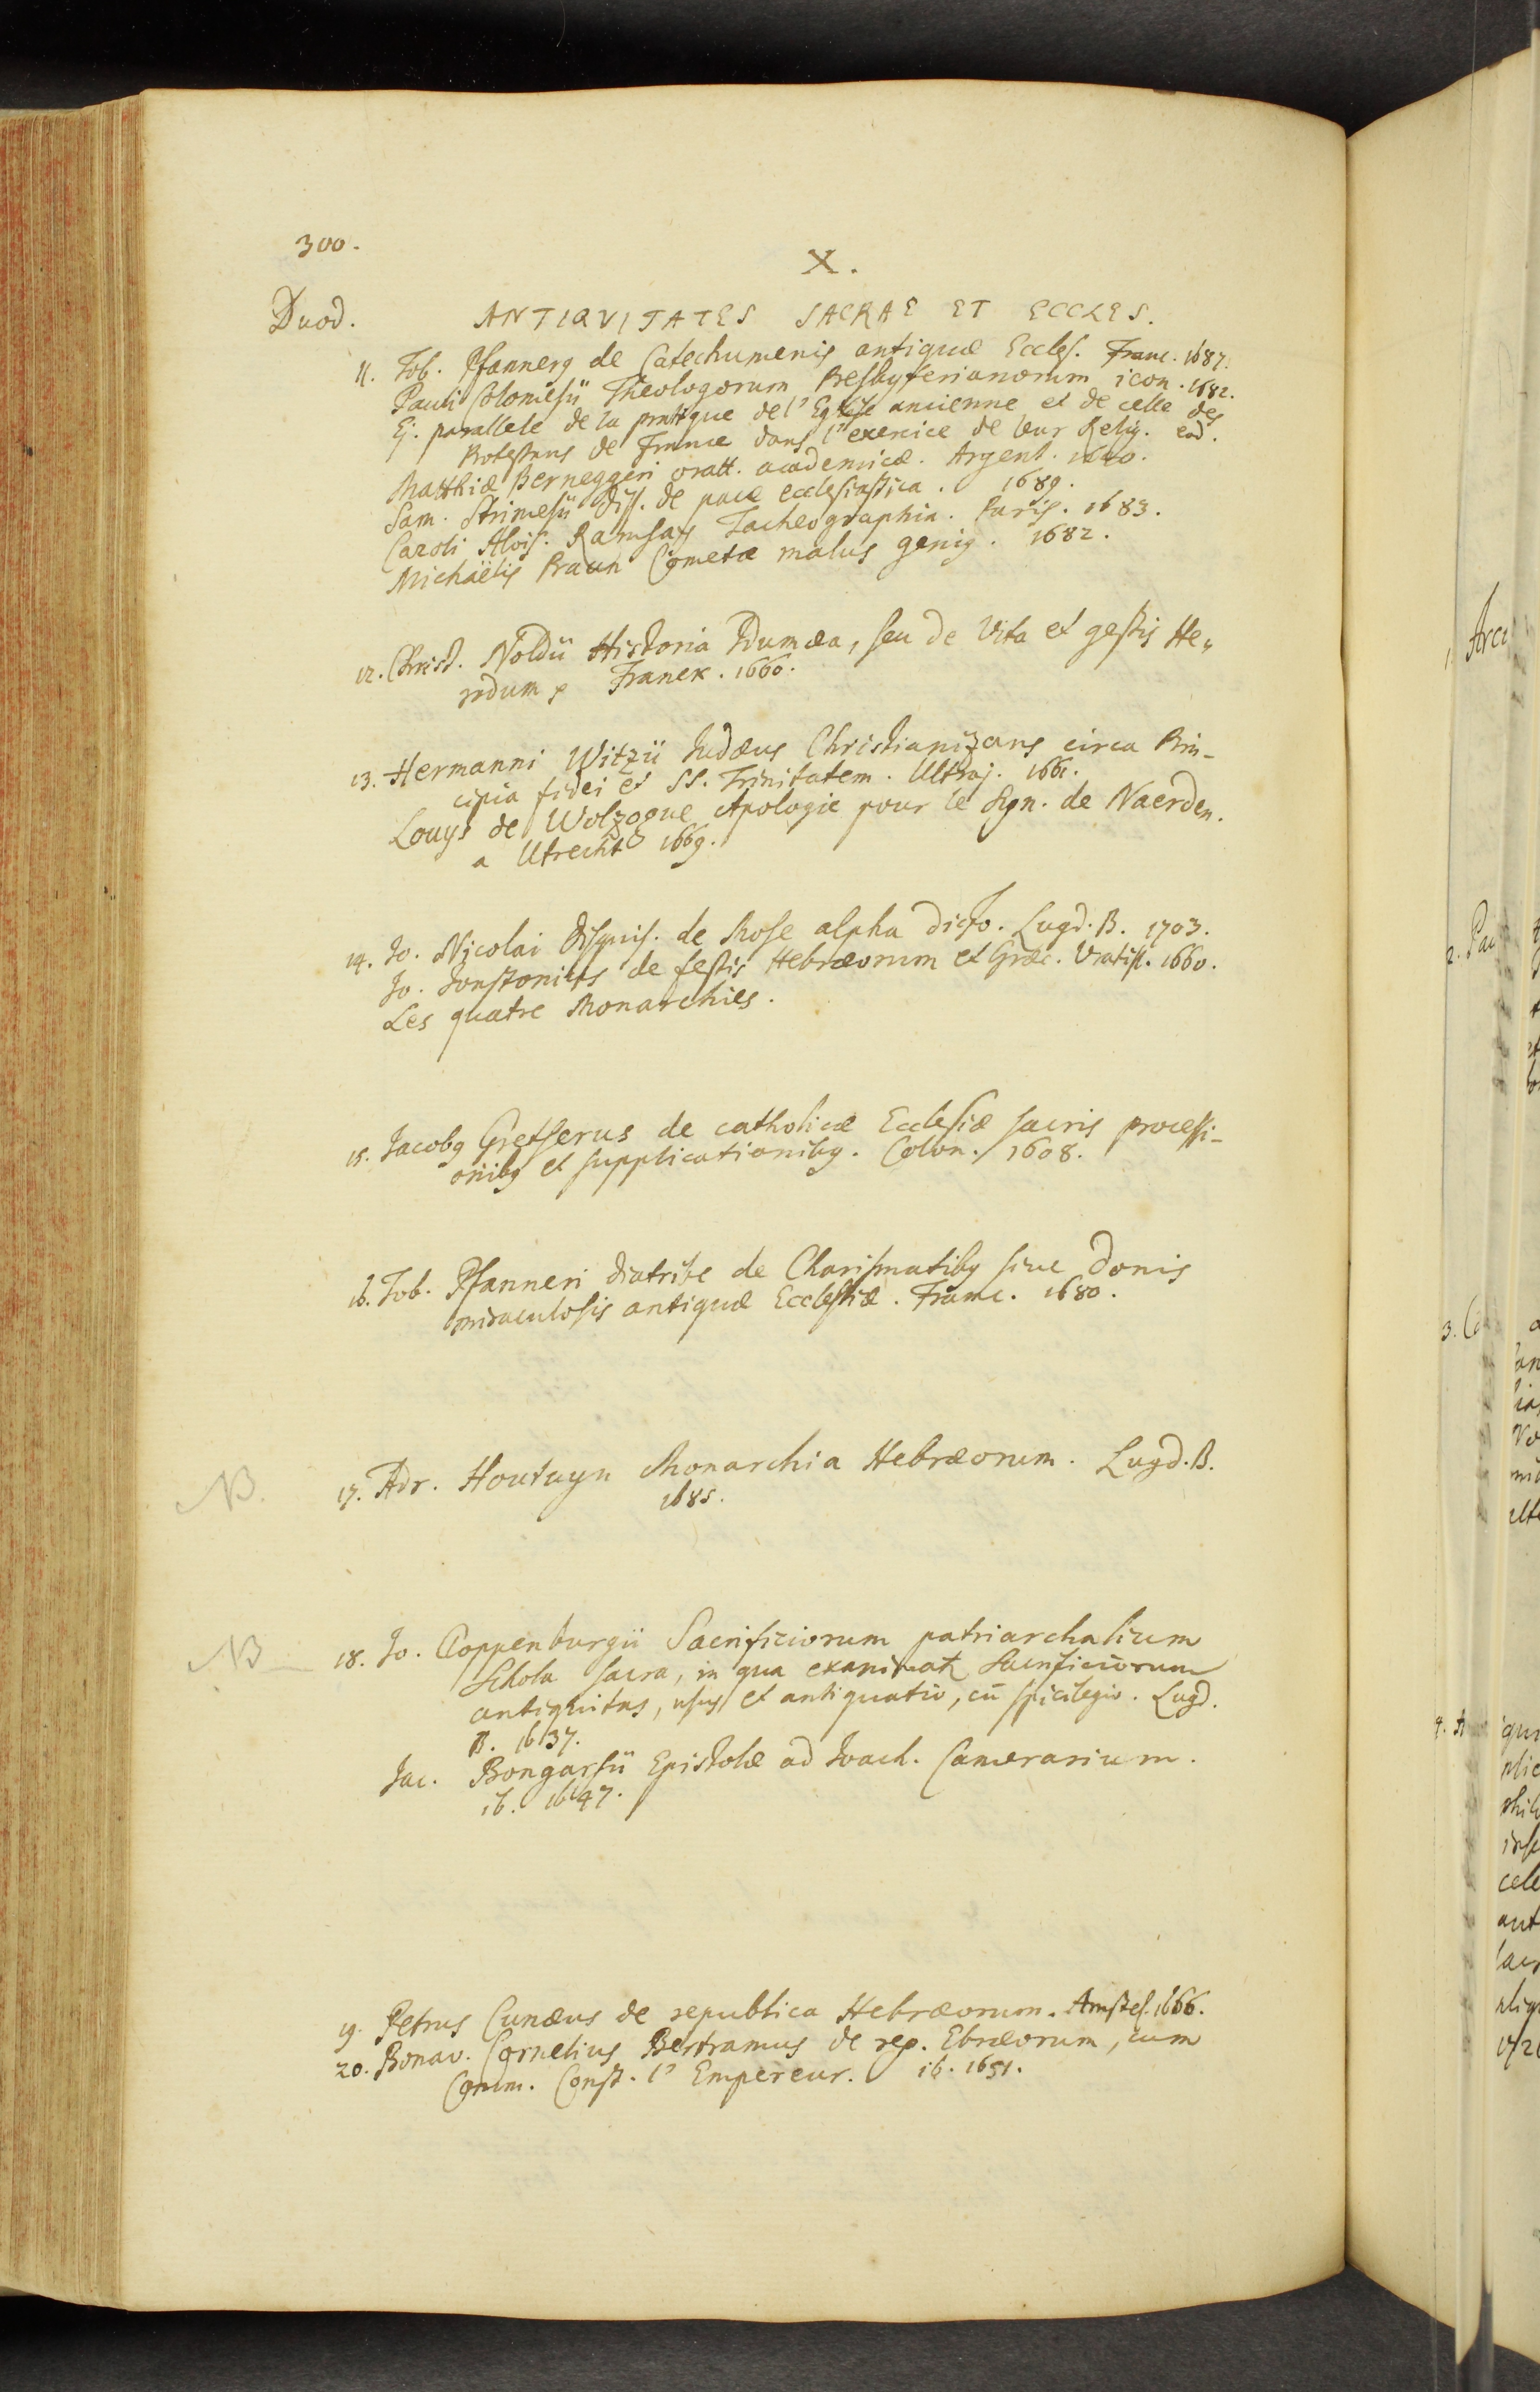 300.
X.
Duod. ANTIQVITATES SACRAE ET ECCLES.
11. Tob. Pfannerq de Catechumenis antiquæ Eccles. Franc. 1687.
Pauli Colomesii Theologorum Presbyterianorum icon. 1682.
Ej. parallele de la pratique de l'Eglise ancienne et de celle des
Protestans de France dans l'exercice de leur Relig. eod.
Matthiæ Berneggeri oratt. academicæ. Argent. 1640.
Sam. Strimesii diss. de pace ecclesiastica. 1689.
Caroli Alois. Ramsay Tacheographia. Paris. 1683.
Michaëlis Praun Cometæ malus geniq. 1682.
12. Christ. Noldii Historia Idumæa, seu de Vita et gestis He-
rodum Franek. 1660.
13. Hermanni Witzii Judæus Christianizans circa Prin-
cipia fidei et SS. Trinitatem. Ultraj. 1661.
Louys de Wolzogue Apologie pour le Syn. de Naerden.
a Utrecht 1669.
14. Jo. Nicolai disquis. de Mose alpha dicto. Lugd. B. 1703.
Jo. Jonstonius de festis Hebræorum et Græc. Vratisl. 1660.
Les quatre Monarchies.
15. Jacobq Gretserus de catholicæ Ecclesiæ sacris processi-
onibq et supplicationibq. Colon. 1608.
16. Tob. Pfanneri diatribe de Charismatibq sive donis
miraculosis antiquæ Ecclesiæ. Franc. 1680.
NB. 17. Adr. Houtuyn Monarchia Hebræorum. Lugd. B.
1685.
NB 18. Jo. Cloppenburgii Sacrificiorum patriarchalium
Schola sacra, in qua examinatr Sacrificiorum
antiquitas, usus et antiquatio, cū spicilegio. Lugd.
B. 1637.
Jac. Bongarsii Epistolæ ad Joach. Camerarium.
ib. 1647.
19. Petrus Cunæus de republica Hebræorum. Amstel. 1666.
20. Bonav. Cornelius Bertramus de rep. Ebræorum, cum
Comm. Const. l'Empereur. ib. 1651.